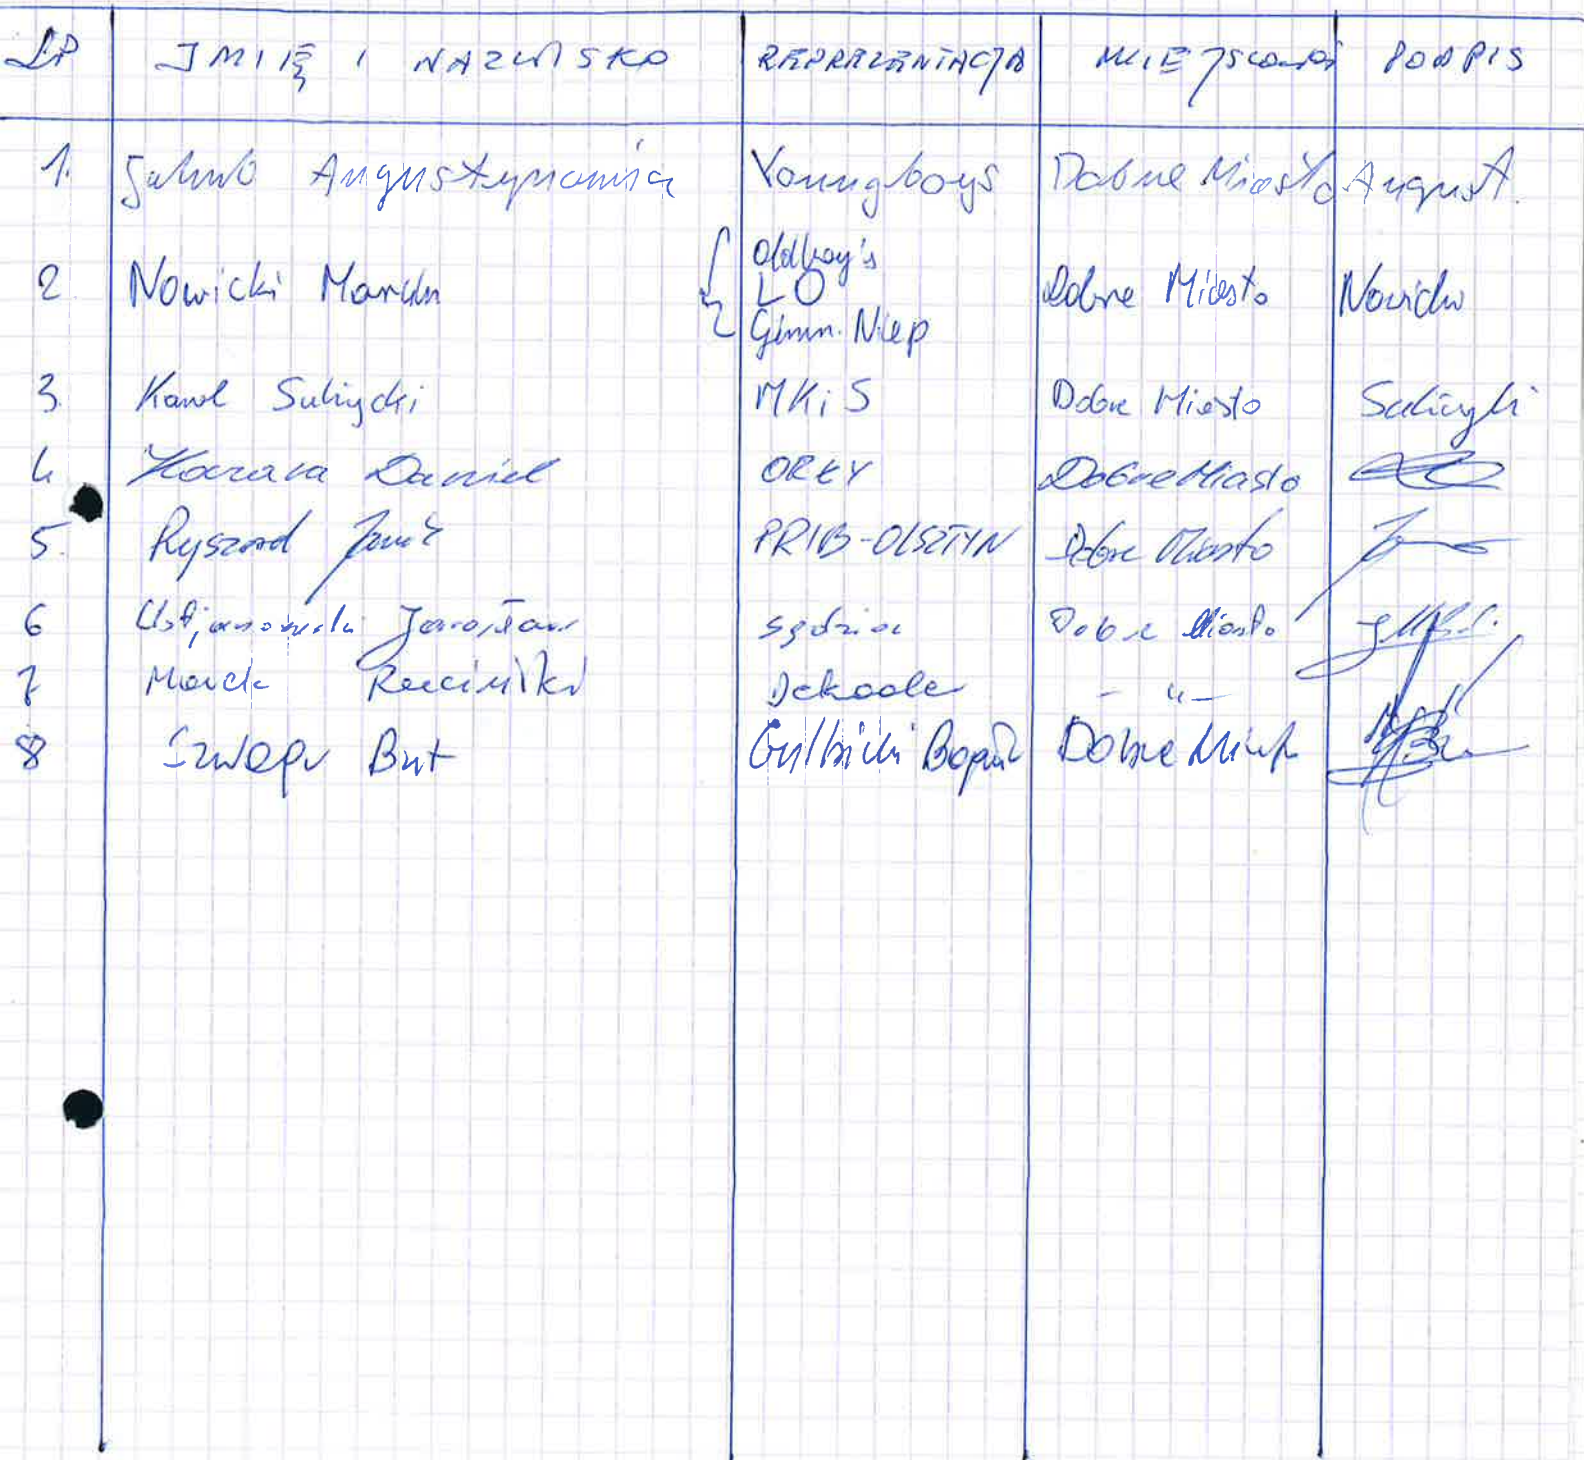 LP IMIĘ I NAZWISKO REPREZENTACJA MIEJSCOWOŚĆ PODPIS
1. Jakub Augustynowicz Youngboys Dobre Miasto August.
2. Nowicki Marcin Oldboy's Dobre Miasto Nowicki
LO
Gimn. Niep
3. Karol Sulżycki MKiS Dobre Miasto
4 Daniel ORŁY Dobre Miasto
5. Ryszard PRIB-OLSZTYN Dobre Miasto
6 Ustjanowski Jarosław sędzia Dobre Miasto
7 Marek Dekoder - " -
8 Szwagr But Gulbicki Dobre Miasto